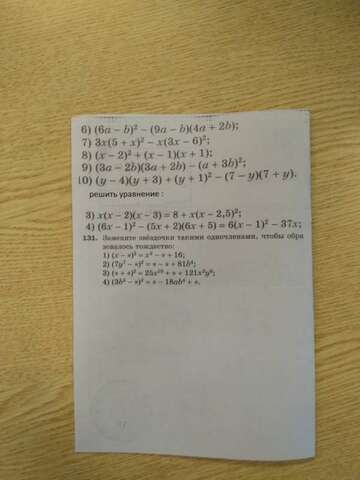 6) (6a − b)² − (9a − b)(4a + 2b);
7) 3x(5 + x)² − x(3x − 6)²;
8) (x − 2)² + (x − 1)(x + 1);
9) (3a − 2b)(3a + 2b) − (a + 3b)²;
10) (y − 4)(y + 3) + (y + 1)² − (7 − y)(7 + y).
решить уравнение :
3) x(x − 2)(x − 3) = 8 + x(x − 2,5)²;
4) (6x − 1)² − (5x + 2)(6x + 5) = 6(x − 1)² − 37x;
131. Замените звёздочки такими одночленами, чтобы обра
зовалось тождество:
1) (x − *)² = x² − * + 16;
2) (7y² − *)² = * − * + 81b⁴;
3) (* + *)² = 25x¹⁰ + * + 121x²y⁸;
4) (3b² − *)² = * − 18ab⁴ + *.